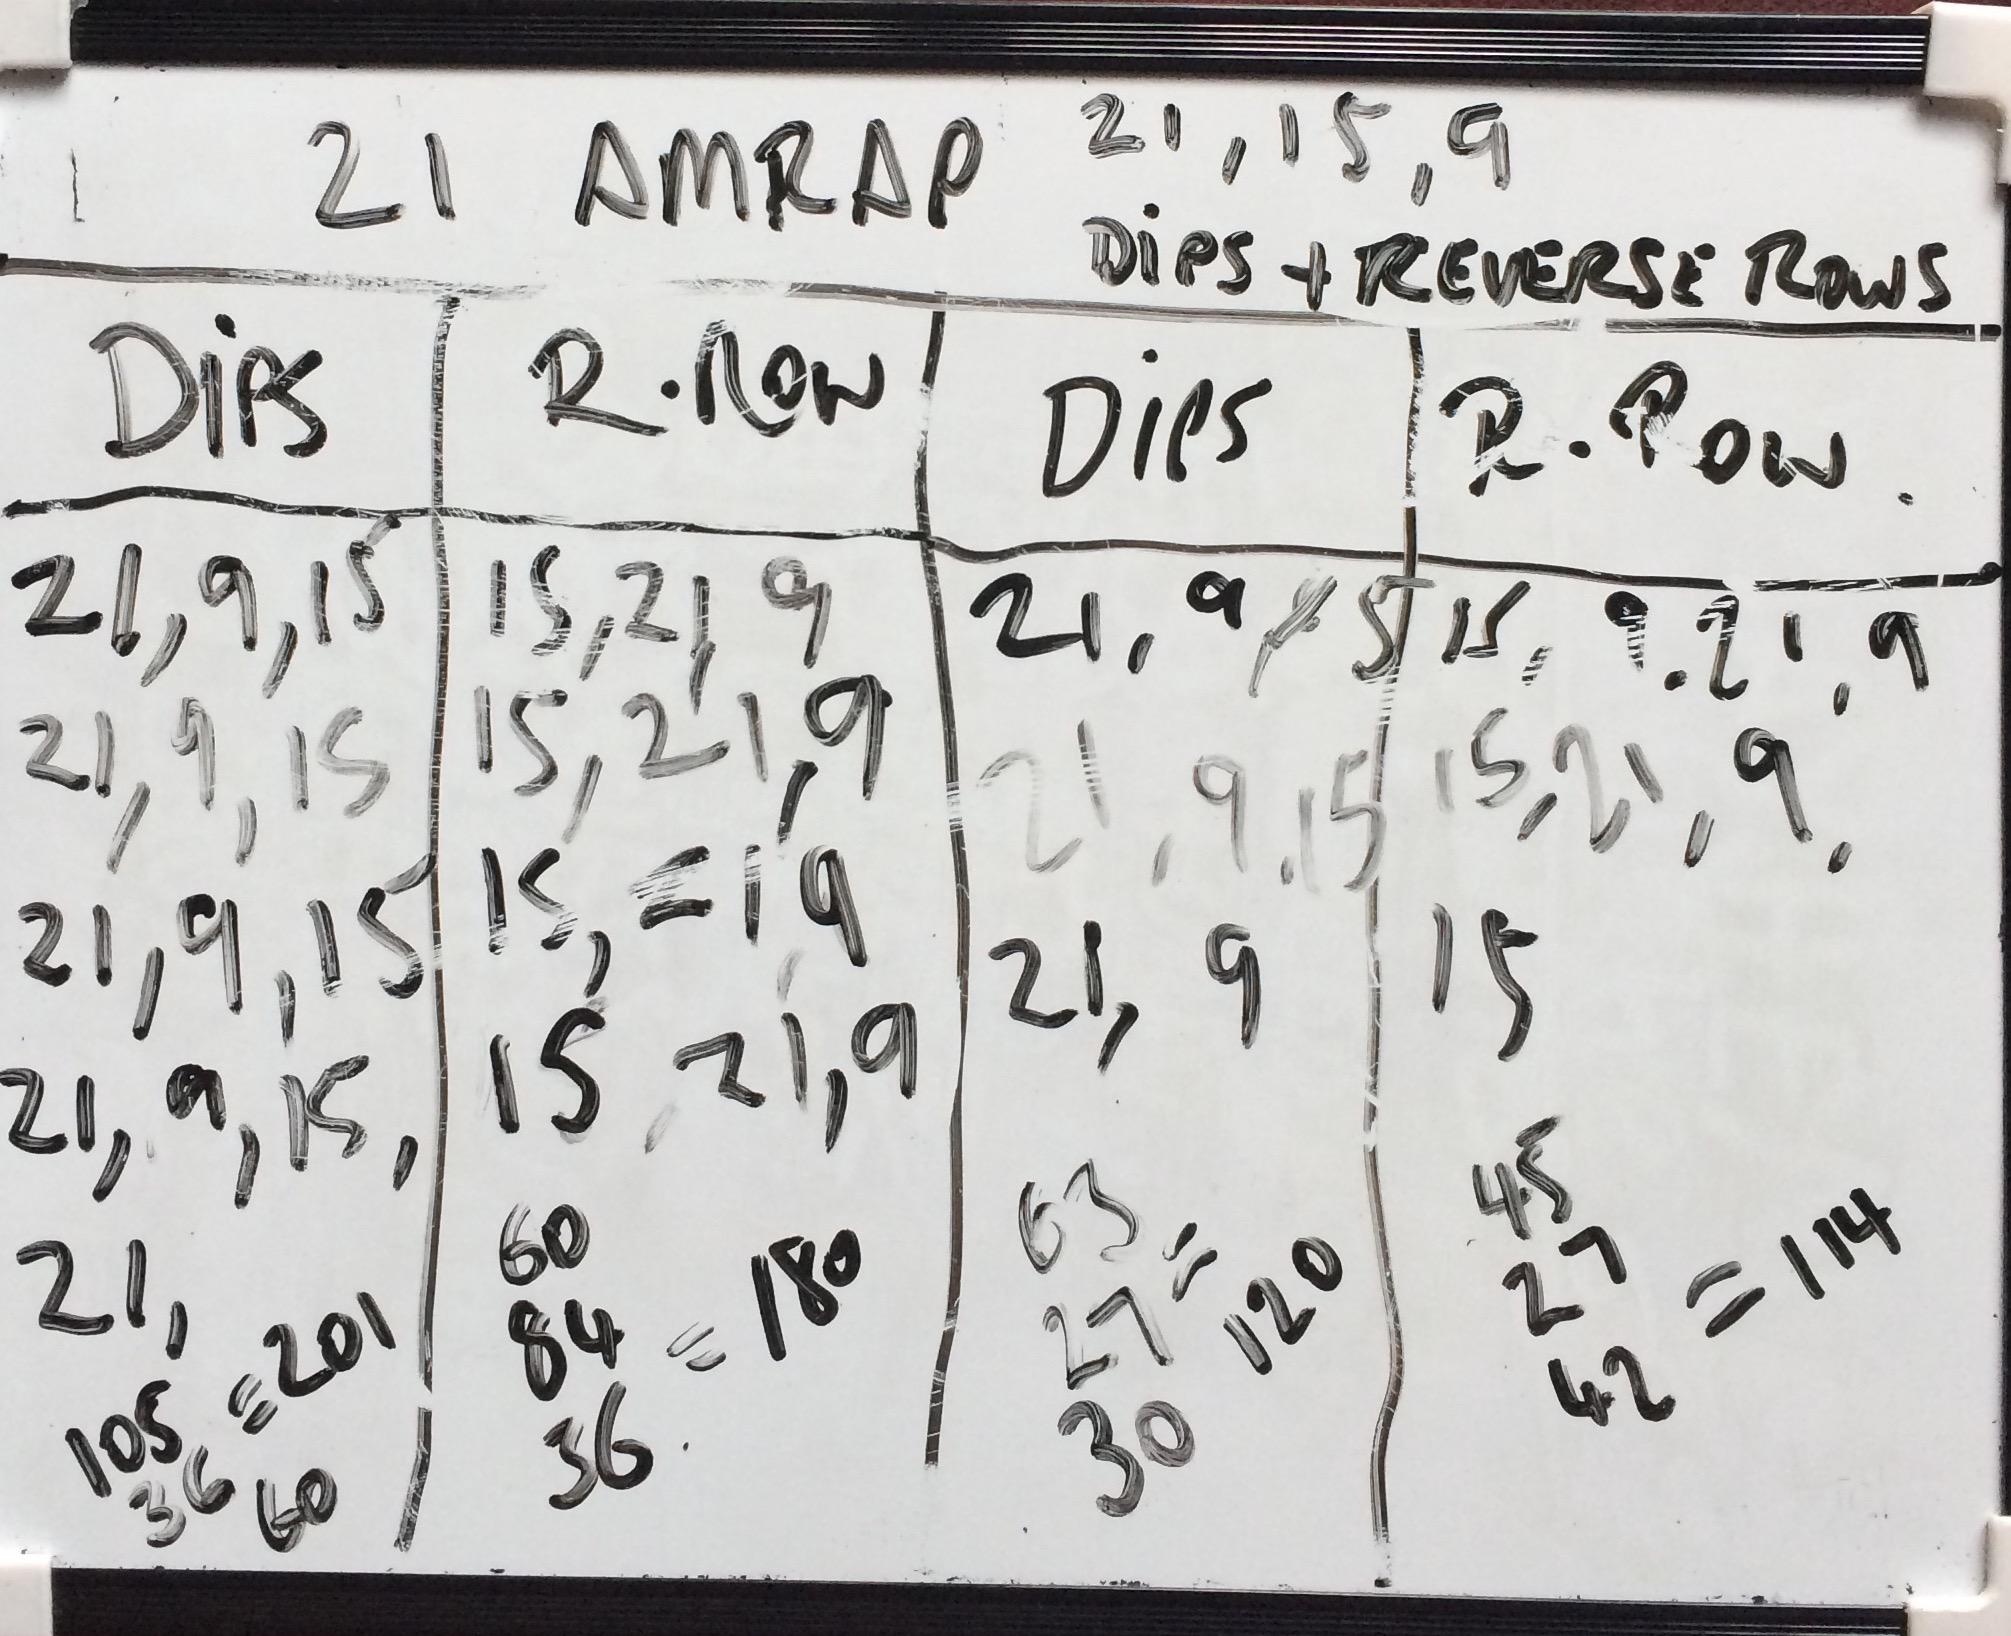 21 AMRAP
21, 15, 9
DiPS + REVERSE ROWS
DiPS
R. ROW
DiPS
R. ROW.
21, 9, 15
21, 9, 15
21, 9, 15
21, 9, 15,
21,
105
36
60
= 201
15, 21, 9
15, 21, 9
15, 21, 9
15, 21, 9
60
84
36.
= 180
21, 9, 15
21, 9, 15
21, 9
63
27
30
= 120
15, 9. 21, 9
15, 21, 9,
15
45
27
42
= 114